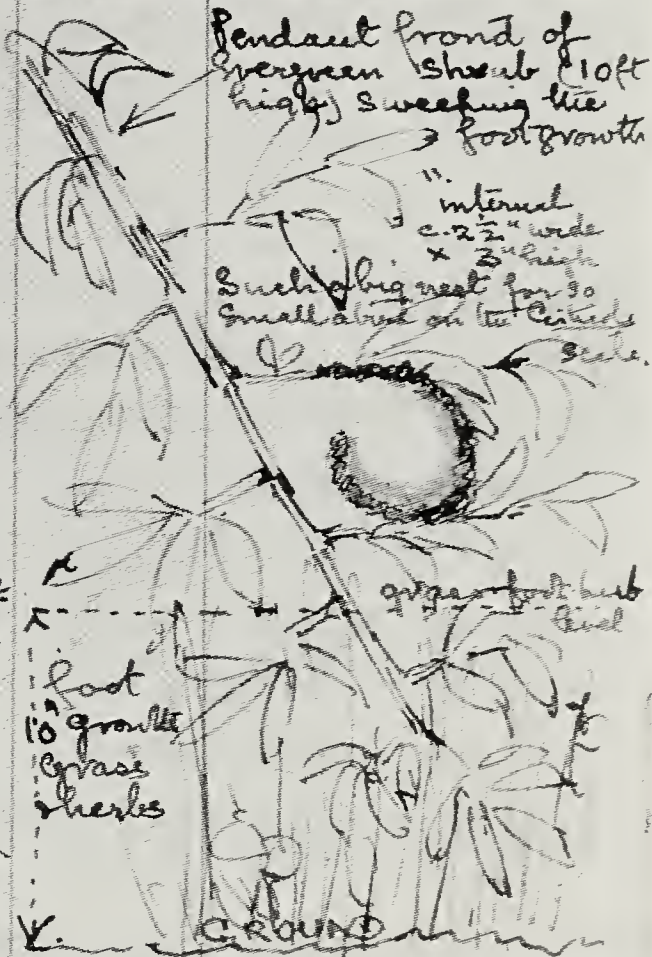 Pendant frond of
evergreen shrub (10ft
high) sweeping the
foot growth
internal
c. 2½" wide
x 3" high
Such a big nest for so
small a bird on the
scale.
foot herb
level
foot
10" growth
Grass
& herbs
GROUND